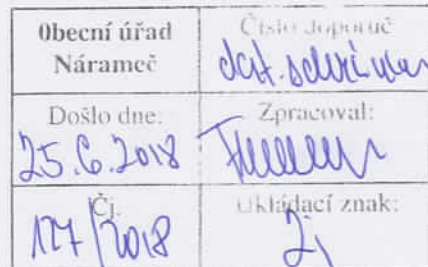 Obecní úřad
Nárameč
Číslo doporuč
dat.
Došlo dne:
25.6.2018
Zpracoval:
Čj.
127/2018
Ukládací znak: